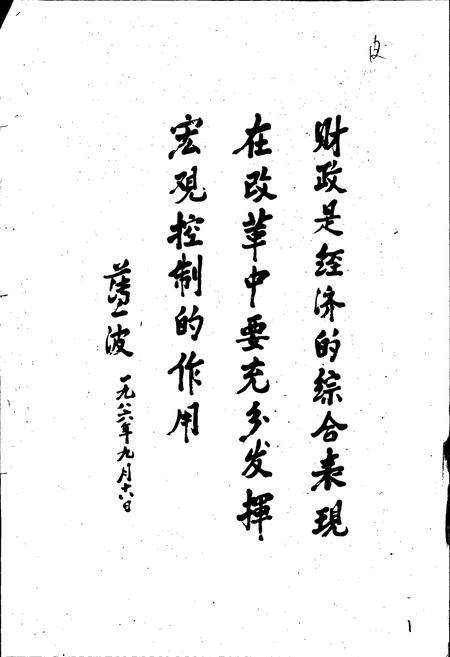 财政是经济的综合表现
在改革中要充分发挥
宏观控制的作用
薄一波
一九八六年九月十六日
1